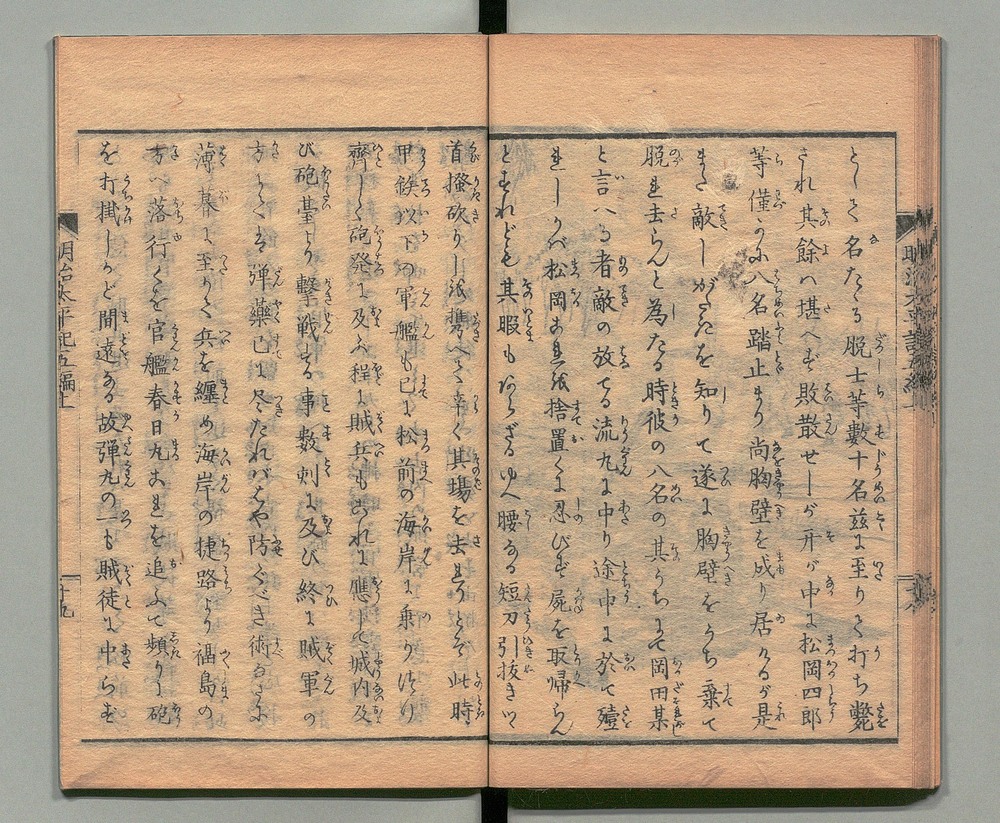 として名たゝる脱士等数十名茲に至りて打ち斃
され其餘ハ堪へず敗散せしが开が中に松岡四郎
等僅かに八名踏止まり尚胸壁を成り居けるが是
また敵しがたきを知りて遂に胸壁をうち乗て
脱れ去らんと為たる時彼の八名の其うちにて岡田某
と言へる者敵の放てる流丸に中り途中に於て殪
れしかバ松岡これを捨置くに忍びず屍を取帰らん
とすれども其暇もあらざるゆへ腰なる短刀引抜きツヽ
首掻砍りし後携へて辛く其場を去りとぞ此時
甲銕以下の軍艦も已に松前の海岸に乗りつけ
齊しく砲発に及ぶ程に賊兵もこれに應じて城内及
び砲臺より撃戦する事数刻に及び終に賊軍の
方にてハ弾藥已に尽たれバはや防ぐべき術なきに
薄暮に至りて兵を纏め海岸の捷路より福島の
方へ落行くを官艦春日丸これを追ふて頻りに砲
を打掛しかど間遠なる故弾丸の一も賊徒に中らず
明治太平記五編上
十九